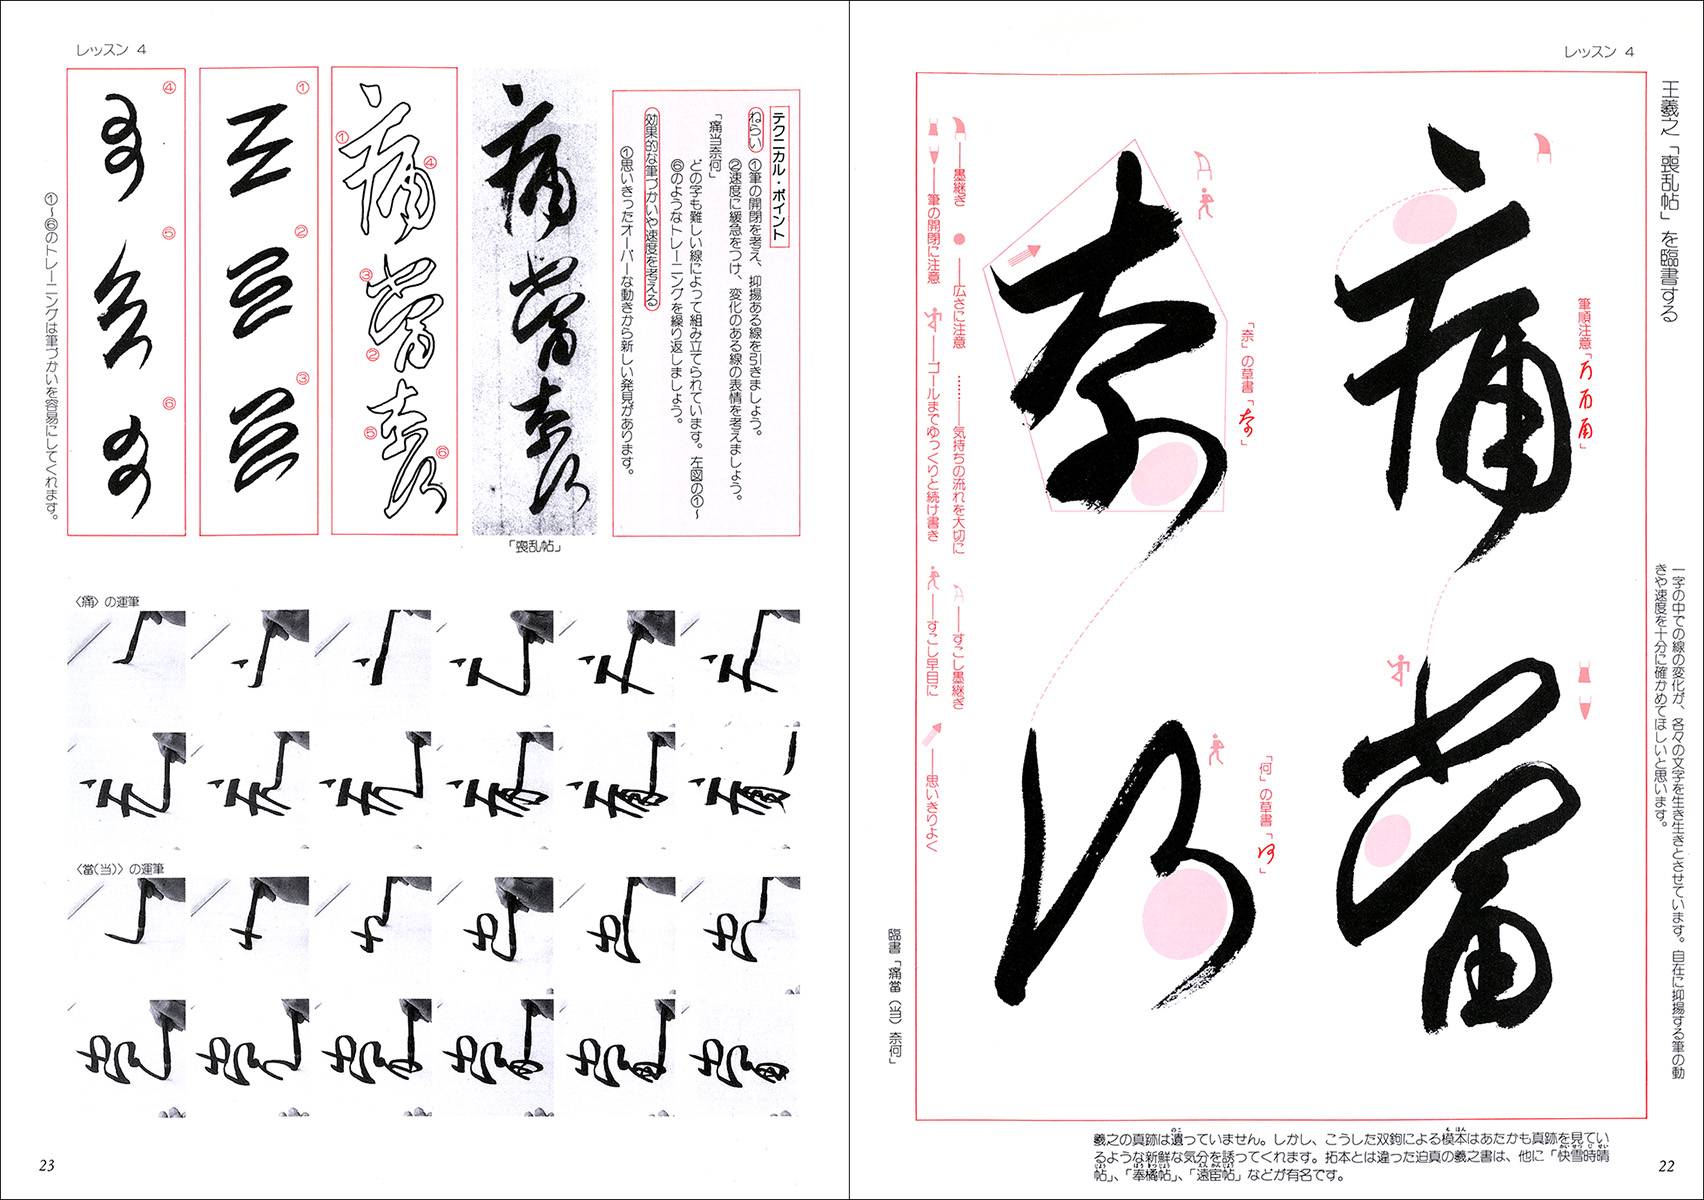 レッスン 4
王羲之「喪乱帖」を臨書する
一字の中での線の変化が、各々の文字を生き生きとさせています。自在に抑揚する筆の動
きや速度を十分に確かめてほしいと思います。
筆順注意「
」
痛當
「奈」の草書「
」
「何」の草書「
」
奈何
墨継ぎ
広さに注意
気持ちの流れを大切に
すこし墨継ぎ
筆の開閉に注意
ゴールまでゆっくりと続け書き
すこし早目に
思いきりよく
臨書「痛當(当)奈何」
羲之の真跡は遺っていません。しかし、こうした双鉤による模本はあたかも真跡を見てい
るような新鮮な気分を誘ってくれます。拓本とは違った迫真の羲之書は、他に「快雪時晴
帖」、「奉橘帖」、「遠宦帖」などが有名です。
22
レッスン 4
テクニカル・ポイント
ねらい ①筆の開閉を考え、抑揚ある線を引きましょう。
②速度に緩急をつけ、変化のある線の表情を考えましょう。
「痛当奈何」
どの字も難しい線によって組み立てられています。左図の①～
⑥のようなトレーニングを繰り返しましょう。
効果的な筆づかいや速度を考える
①思いきったオーバーな動きから新しい発見があります。
痛當奈何
「喪乱帖」
痛當奈何
① ④ ③ ② ⑤ ⑥
①
②
③
④
⑤
⑥
①～⑥のトレーニングは筆づかいを容易にしてくれます。
〈痛〉の運筆
〈當(当)〉の運筆
23